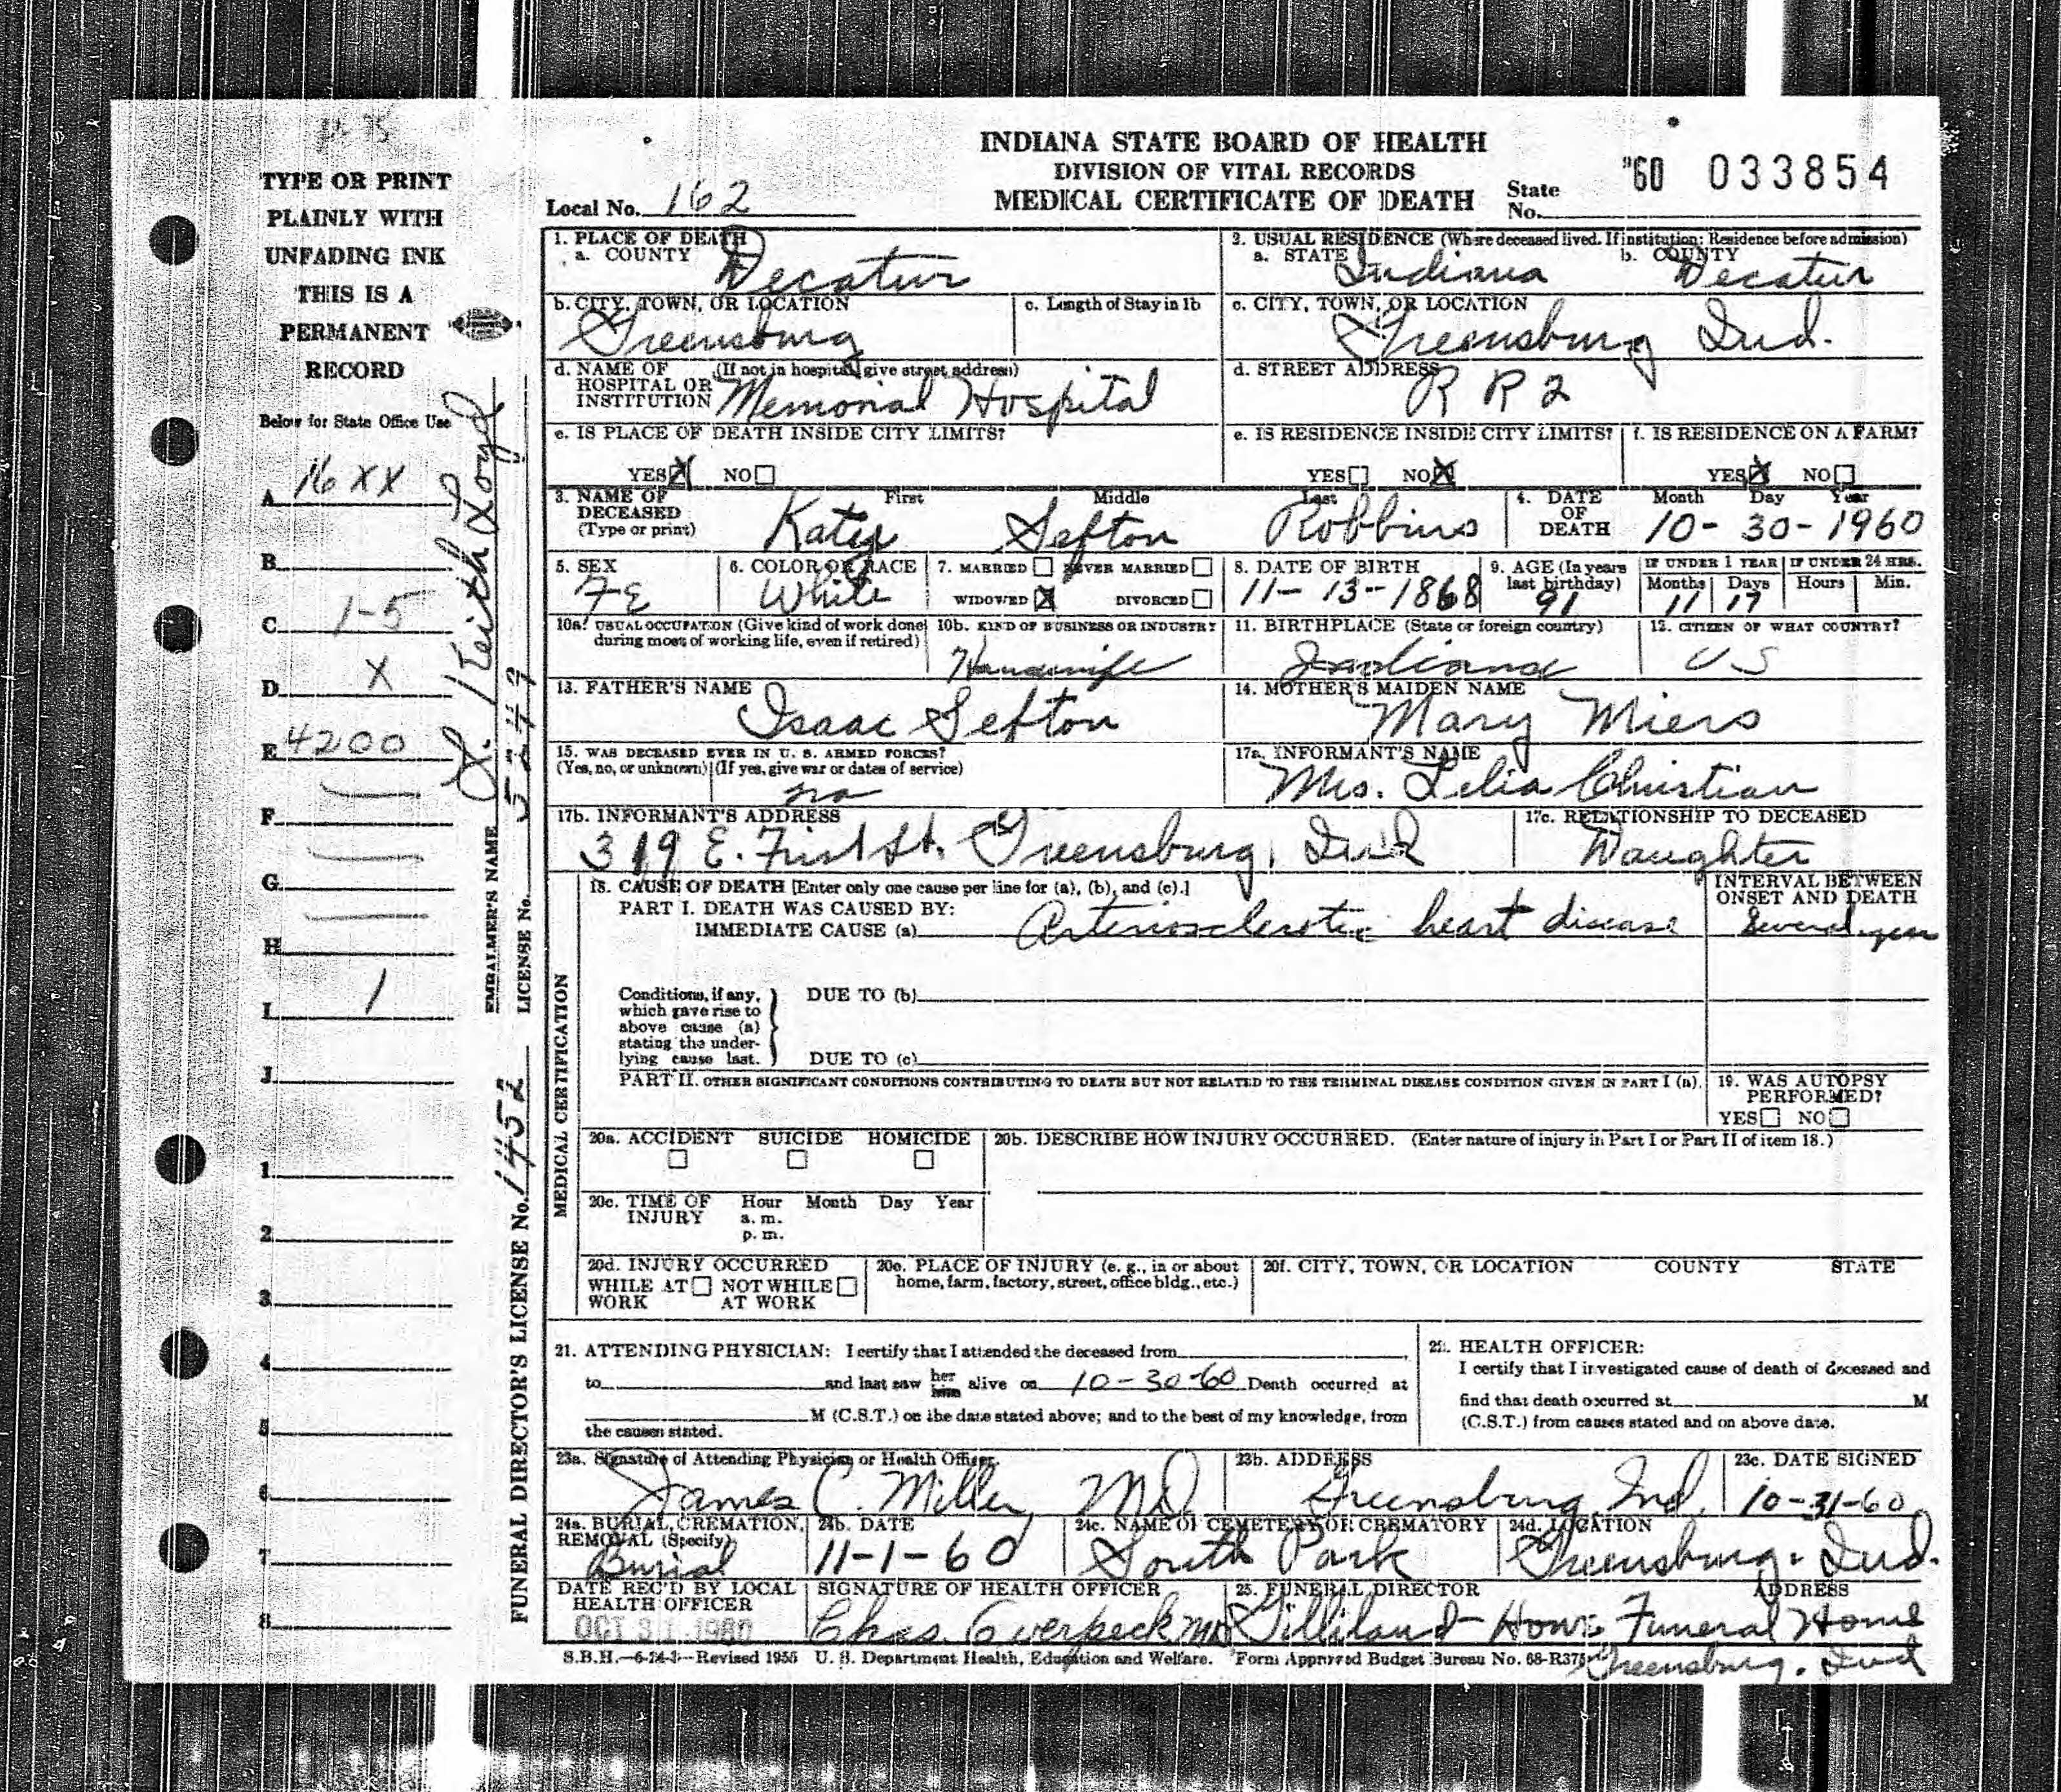 INDIANA STATE BOARD OF HEALTH
DIVISION OF VITAL RECORDS
MEDICAL CERTIFICATE OF DEATH
Local No. 162
State No. '60 033854
TYPE OR PRINT
PLAINLY WITH
UNFADING INK
THIS IS A
PERMANENT
RECORD
Below for State Office Use
A 16XX
B
C 1-5
D X
E 4200
F
G
H
I 1
J
1
2
3
4
5
6
7
8
EMBALMER'S NAME Keith Loyd
LICENSE No. 5249
FUNERAL DIRECTOR'S LICENSE No. 1452
1. PLACE OF DEATH
a. COUNTY Decatur
2. USUAL RESIDENCE (Where deceased lived. If institution: Residence before admission)
a. STATE Indiana b. COUNTY Decatur
b. CITY, TOWN, OR LOCATION Greensburg
c. Length of Stay in 1b
c. CITY, TOWN, OR LOCATION Greensburg Ind.
d. NAME OF HOSPITAL OR INSTITUTION (If not in hospital, give street address) Memorial Hospital
d. STREET ADDRESS R R 2
e. IS PLACE OF DEATH INSIDE CITY LIMITS?
YES X NO
e. IS RESIDENCE INSIDE CITY LIMITS?
YES NO X
f. IS RESIDENCE ON A FARM?
YES X NO
3. NAME OF DECEASED (Type or print) First Middle Last
Sefton Robbins
4. DATE OF DEATH Month Day Year
10-30-1960
5. SEX FE
6. COLOR OR RACE White
7. MARRIED NEVER MARRIED
WIDOWED X DIVORCED
8. DATE OF BIRTH 11-13-1868
9. AGE (In years last birthday) 91
IF UNDER 1 YEAR Months 11 Days 17
IF UNDER 24 HRS. Hours Min.
10a. USUAL OCCUPATION (Give kind of work done during most of working life, even if retired)
10b. KIND OF BUSINESS OR INDUSTRY Housewife
11. BIRTHPLACE (State or foreign country) Indiana
12. CITIZEN OF WHAT COUNTRY? US
13. FATHER'S NAME Isaac Sefton
14. MOTHER'S MAIDEN NAME Mary Miers
15. WAS DECEASED EVER IN U. S. ARMED FORCES?
(Yes, no, or unknown) (If yes, give war or dates of service)
no
17a. INFORMANT'S NAME Mrs. Lelia Christian
17b. INFORMANT'S ADDRESS 319 E. First St. Greensburg, Ind
17c. RELATIONSHIP TO DECEASED Daughter
MEDICAL CERTIFICATION
18. CAUSE OF DEATH [Enter only one cause per line for (a), (b), and (c).]
PART I. DEATH WAS CAUSED BY:
IMMEDIATE CAUSE (a) Arteriosclerotic heart disease
INTERVAL BETWEEN ONSET AND DEATH
Several years
Conditions, if any, which gave rise to above cause (a) stating the underlying cause last.
DUE TO (b)
DUE TO (c)
PART II. OTHER SIGNIFICANT CONDITIONS CONTRIBUTING TO DEATH BUT NOT RELATED TO THE TERMINAL DISEASE CONDITION GIVEN IN PART I (a).
19. WAS AUTOPSY PERFORMED?
YES NO
20a. ACCIDENT SUICIDE HOMICIDE
20b. DESCRIBE HOW INJURY OCCURRED. (Enter nature of injury in Part I or Part II of item 18.)
20c. TIME OF INJURY Hour Month Day Year
a. m.
p. m.
20d. INJURY OCCURRED
WHILE AT WORK NOT WHILE AT WORK
20e. PLACE OF INJURY (e. g., in or about home, farm, factory, street, office bldg., etc.)
20f. CITY, TOWN, OR LOCATION COUNTY STATE
21. ATTENDING PHYSICIAN: I certify that I attended the deceased from
to and last saw her him alive on 10-30-60 Death occurred at
M (C.S.T.) on the date stated above; and to the best of my knowledge, from
the causes stated.
22. HEALTH OFFICER:
I certify that I investigated cause of death of deceased and
find that death occurred at M
(C.S.T.) from causes stated and on above date.
23a. Signature of Attending Physician or Health Officer. James C. Miller, MD
23b. ADDRESS Greensburg, Ind.
23c. DATE SIGNED 10-31-60
24a. BURIAL, CREMATION, REMOVAL (Specify) Burial
24b. DATE 11-1-60
24c. NAME OF CEMETERY OR CREMATORY South Park
24d. LOCATION Greensburg, Ind.
DATE REC'D BY LOCAL HEALTH OFFICER OCT 31 1960
SIGNATURE OF HEALTH OFFICER Chas. Overpeck MD
25. FUNERAL DIRECTOR ADDRESS
Gilliland-Howe Funeral Home
Greensburg, Ind
S.B.H.—6-24-3—Revised 1955 U. S. Department Health, Education and Welfare. Form Approved Budget Bureau No. 68-R375